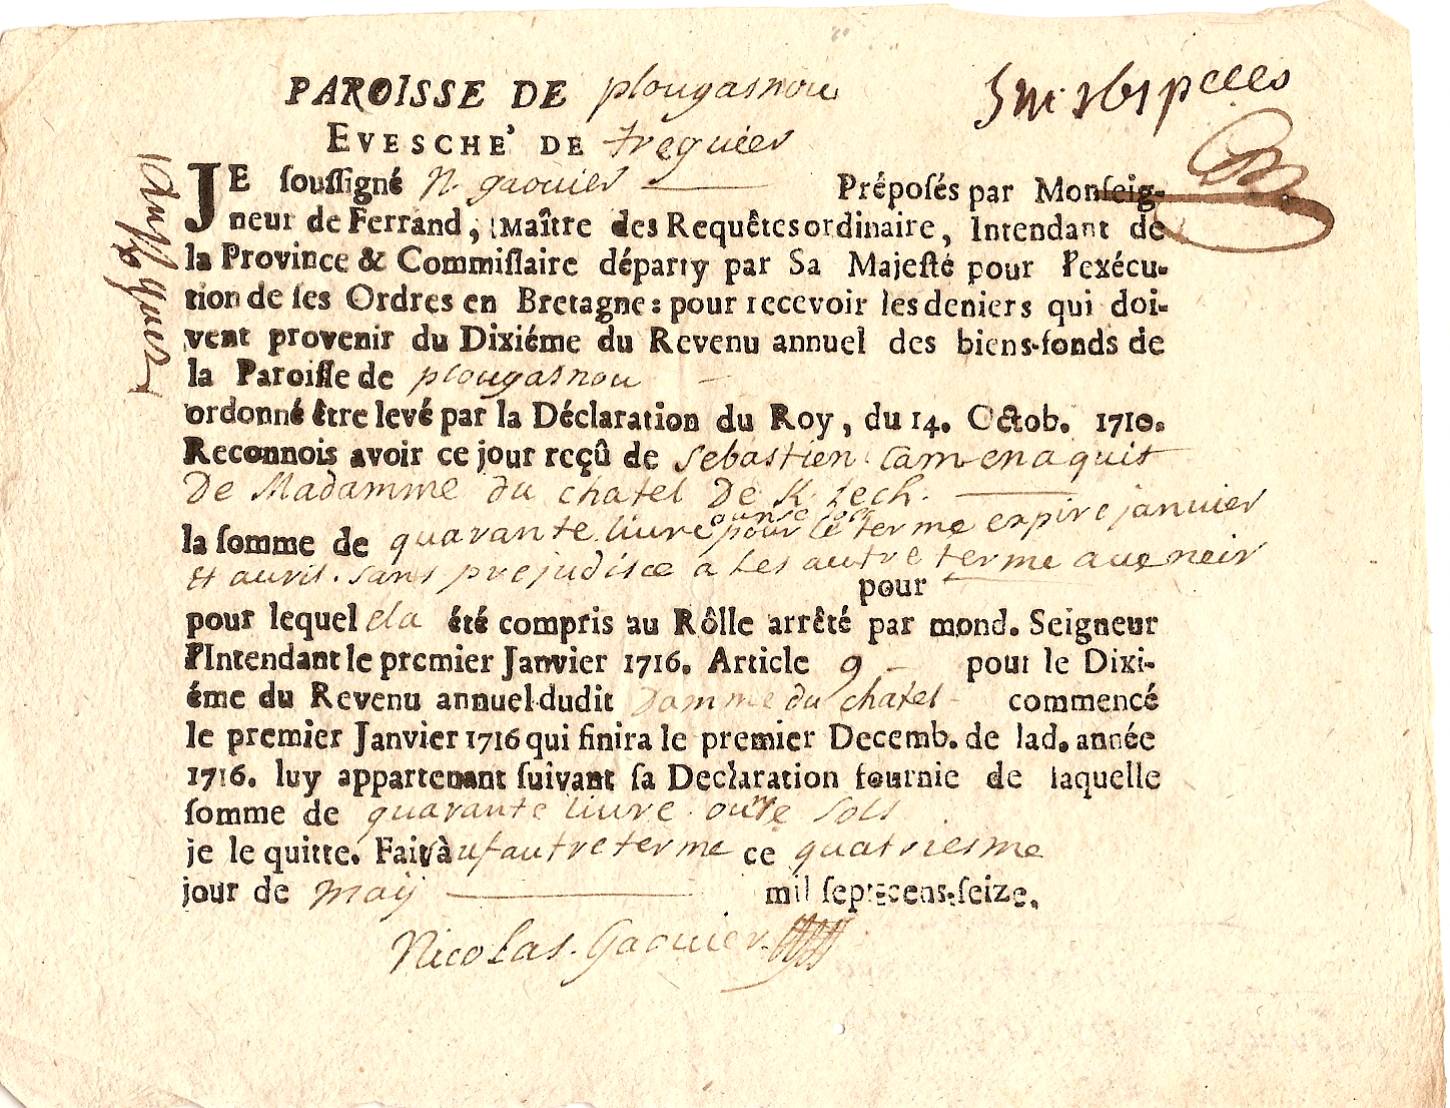 PAROISSE DE plougasnou
EVESCHE' DE treguier
JE soussigné N. gaouier Préposés par Monseig-
neur de Ferrand, Maître des Requêtes ordinaire, Intendant de
la Province & Commissaire départy par Sa Majesté pour l'exécu-
tion de ses Ordres en Bretagne: pour recevoir les deniers qui doi-
vent provenir du Dixiéme du Revenu annuel des biens-fonds de
la Paroisse de plougasnou
ordonné être levé par la Déclaration du Roy, du 14. Octob. 1710.
Reconnois avoir ce jour reçû de Sebastien Cam en aquit
De Madamme du chatel De K. lech.
la somme de quarante livre ounse sols pour le terme expire janvier
Et auril. sans prejudise a Les autre terme auenoir
pour
pour lequel ela été compris au Rôlle arrêté par mond. Seigneur
l'Intendant le premier Janvier 1716. Article 9 pour le Dixi-
éme du Revenu annuel dudit Damme du chatel commencé
le premier Janvier 1716 qui finira le premier Decemb. de lad. année
1716. luy appartenant suivant sa Declaration fournie de laquelle
somme de quarante livre ounse sols
je le quitte. Fait à ce quatriesme
jour de maij mil sept cens seize.
Nicolas. Gaouier